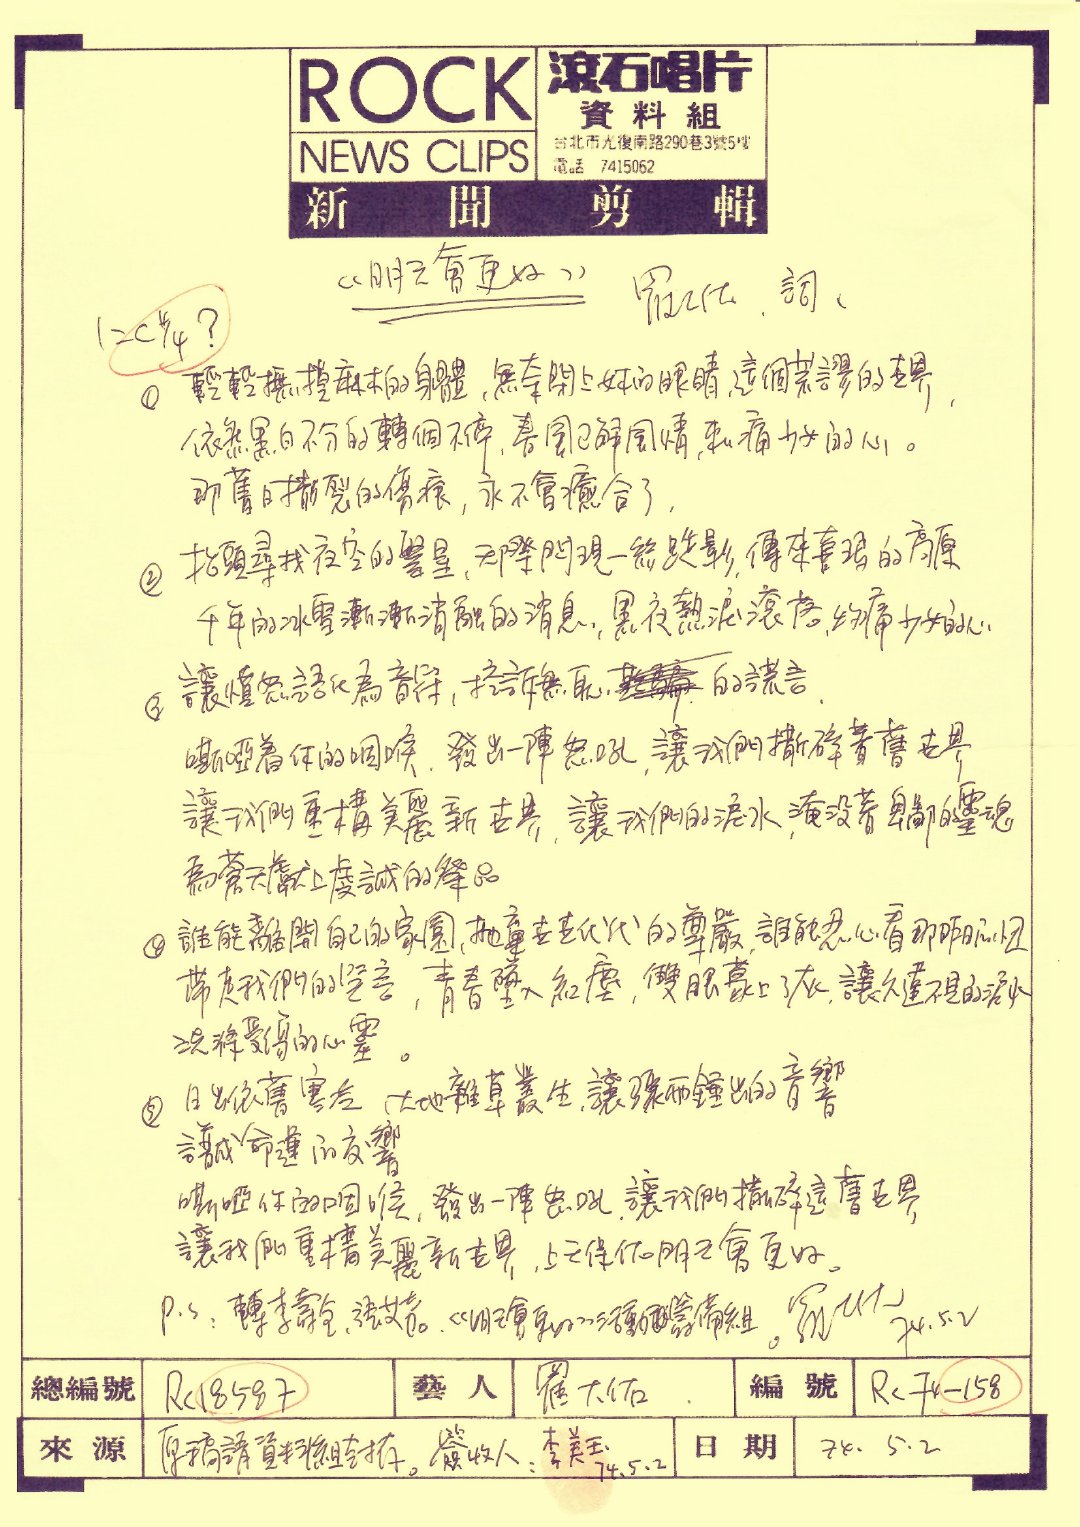 ROCK
NEWS CLIPS
滾石唱片
資料組
台北市光復南路290巷3號5樓
電話 7415062
新聞剪輯
《明天會更好》 羅大佑 . 詞、
12C 4/4 ?
① 輕輕撫摸麻木的身體,無奈閉上妳的眼睛,這個荒謬的世界,
依然黑白不分的轉個不停,春風已解風情,刺痛少女的心。
那舊日撕裂的傷痕,永不會癒合了,
② 抬頭尋找夜空的繁星,天際閃現一絲蹤影,傳來喜瑪的高原
千年的冰雪漸漸消融的消息,黑夜熱淚滾落,灼痛少女的心
③ 讓憤怒語化為音符,控訴無恥 的謊言.
嘶啞着你的咽喉.發出一陣怒吼,讓我們撕碎著舊世界
讓我們重構美麗新世界,讓我們的淚水,淹没著卑鄙的靈魂
為蒼天獻上虔誠的祭品
④ 誰能離開自己的家園,拋棄世世代代的尊嚴,誰能忍心看那昨日的
帶走我們的,青春墮入紅塵,雙眼蒙上了灰,讓久違不見的淚水
洗滌受傷的心靈。
⑤ 日出依舊寒冷 大地雜草叢生,讓出的音響
譜成命運的交響
嘶啞你的咽喉,發出一陣怒吼,讓我們撕碎這舊世界
讓我們重構美麗新世界,上天保佑明天會更好。
P.S: 轉李壽全,張艾嘉。《明天會更好》活動籌備組。羅大佑 74.5.2
總編號 Rc18587 藝人 羅大佑 . 編號 Rc74-158
來源 原稿請資料組封存。簽收人:李美玉 74.5.2 日期 74. 5.2